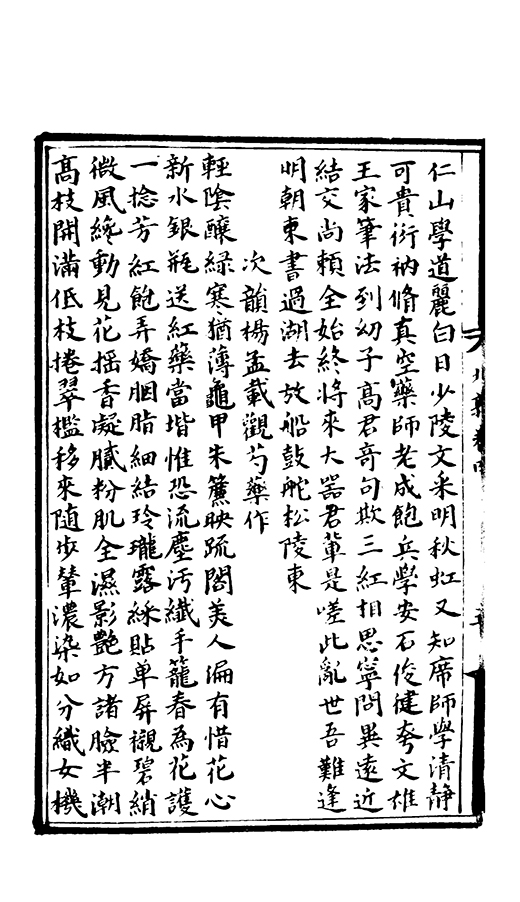 仁山學道麗白日少陵文采明秋虹又知席師學清靜
可貴衍衲脩真空藥師老成飽兵學安石俊健夸文雄
王家筆法到幼子高君奇句欺三紅相思寧問異遠近
結交尚賴全始終將來大器君輩是嗟此亂世吾難逢
明朝東書過湖去放船鼓舵松陵東
次韻楊孟載觀芍藥作
輕陰釀綠寒猶薄龜甲朱簾映疏閤美人偏有惜花心
新水銀瓶送紅藥當堦惟恐流塵汚纖手籠春為花護
一捻芳紅飽弄嬌胭脂細結玲瓏露綵貼單屏襯碧綃
微風纔動見花搖香凝膩粉肌全濕影艷方諸臉半潮
高枝開滿低枝捲翠檻移來隨步輦濃染如分織女機